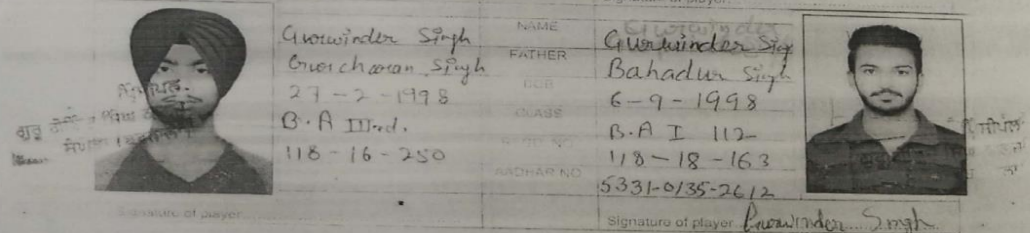 Signature of player
Gurwinder Singh
Gurcharan Singh
27-2-1998
B.A IIIrd.
118-16-250
Signature of player
NAME
FATHER
DOB
CLASS
AADHAR NO
Gurwinder
Gurwinder Sing
Bahadur Singh
6-9-1998
B.A I 112
118-18-163
5331-0135-2612
Signature of player Gurwinder Singh